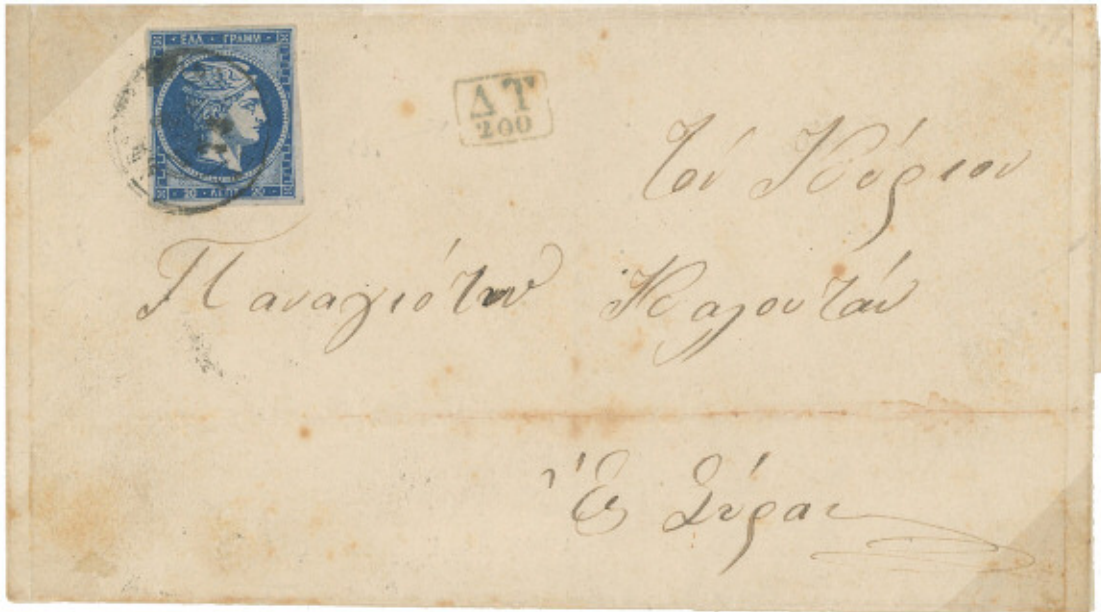 ΕΛΛ · ΓΡΑΜΜ
20 · ΛΕΠΤ · 20
ΔΤ
200
Τὸν Κύριον
Παναγιότην Καλουτάν
Ἐς Σύραν